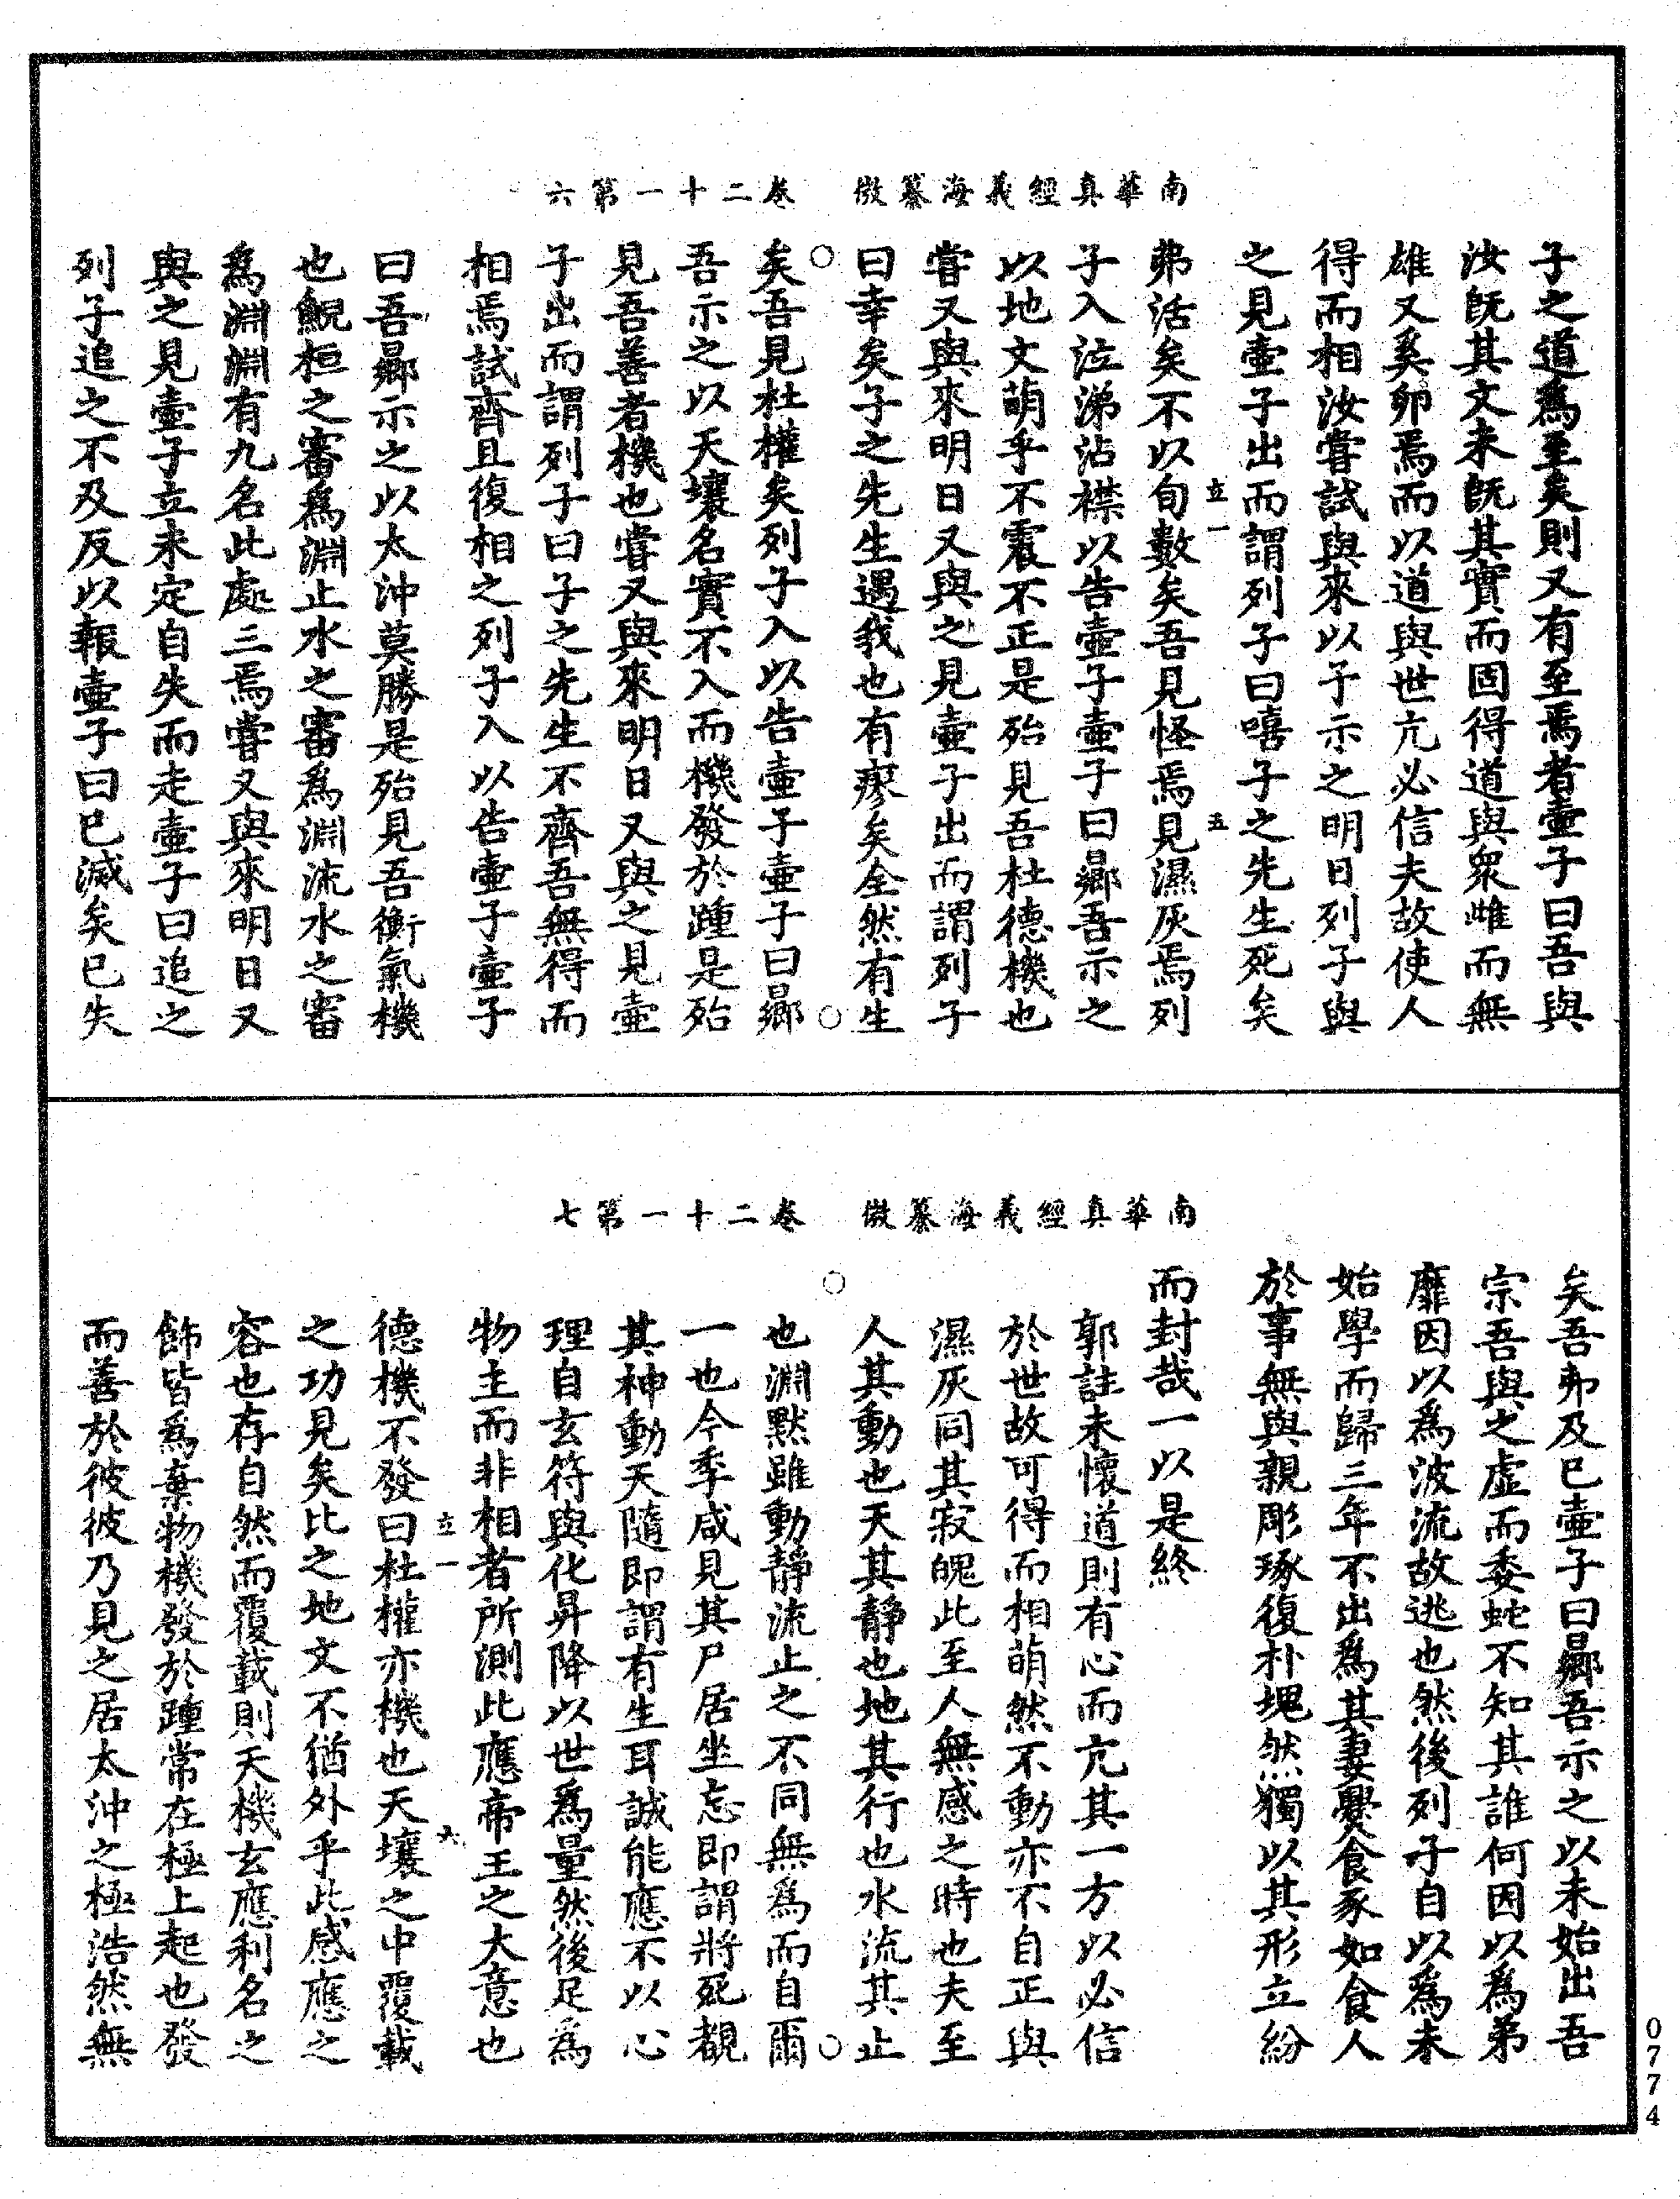 南華真經義海纂微　卷二十一第六
子之道爲至矣則又有至焉者壷子曰吾與
汝旣其文未旣其實而固得道與衆雌而無
雄又奚卵焉而以道與世亢必信夫故使人
得而相汝嘗試與來以予示之明日列子與
之見壷子出而謂列子曰嘻子之先生死矣
立一　五
弗活矣不以旬數矣吾見怪焉見濕灰焉列
子入泣涕沾襟以告壷子壷子曰鄉吾示之
以地文萌乎不震不正是殆見吾杜德機也
嘗又與來明日又與之見壷子出而謂列子
曰幸矣子之先生遇我也有瘳矣全然有生
○　○
矣吾見杜權矣列子入以告壷子壷子曰鄉
吾示之以天壤名實不入而機發於踵是殆
見吾善者機也嘗又與來明日又與之見壷
子出而謂列子曰子之先生不齊吾無得而
相焉試齊且復相之列子入以告壷子壷子
曰吾鄉示之以太沖莫勝是殆見吾衡氣機
也鯢桓之審爲淵止水之審爲淵流水之審
爲淵淵有九名此處三焉嘗又與來明日又
與之見壷子立未定自失而走壷子曰追之
列子追之不及反以報壷子曰已滅矣已失
南華真經義海纂微　卷二十一第七
矣吾弗及已壷子曰鄉吾示之以未始出吾
宗吾與之虛而委蛇不知其誰何因以爲弟
靡因以爲波流故逃也然後列子自以爲未
始學而歸三年不出爲其妻爨食豕如食人
於事無與親彫琢復朴塊然獨以其形立紛
而封哉一以是終
郭註未懷道則有心而亢其一方以必信
於世故可得而相萌然不動亦不自正與
濕灰同其寂魄此至人無感之時也夫至
人其動也天其靜也地其行也水流其止
○　○
也淵默雖動靜流止之不同無爲而自爾
一也今季咸見其尸居坐忘即謂將死覩
其神動天隨即謂有生耳誠能應不以心
理自玄符與化昇降以世爲量然後足爲
物主而非相者所測此應帝王之大意也
立一　六
德機不發曰杜權亦機也天壤之中覆載
之功見矣比之地文不猶外乎此感應之
容也存自然而覆載則天機玄應利名之
飾皆爲棄物機發於踵常在極上起也發
而善於彼彼乃見之居太沖之極浩然無
0774